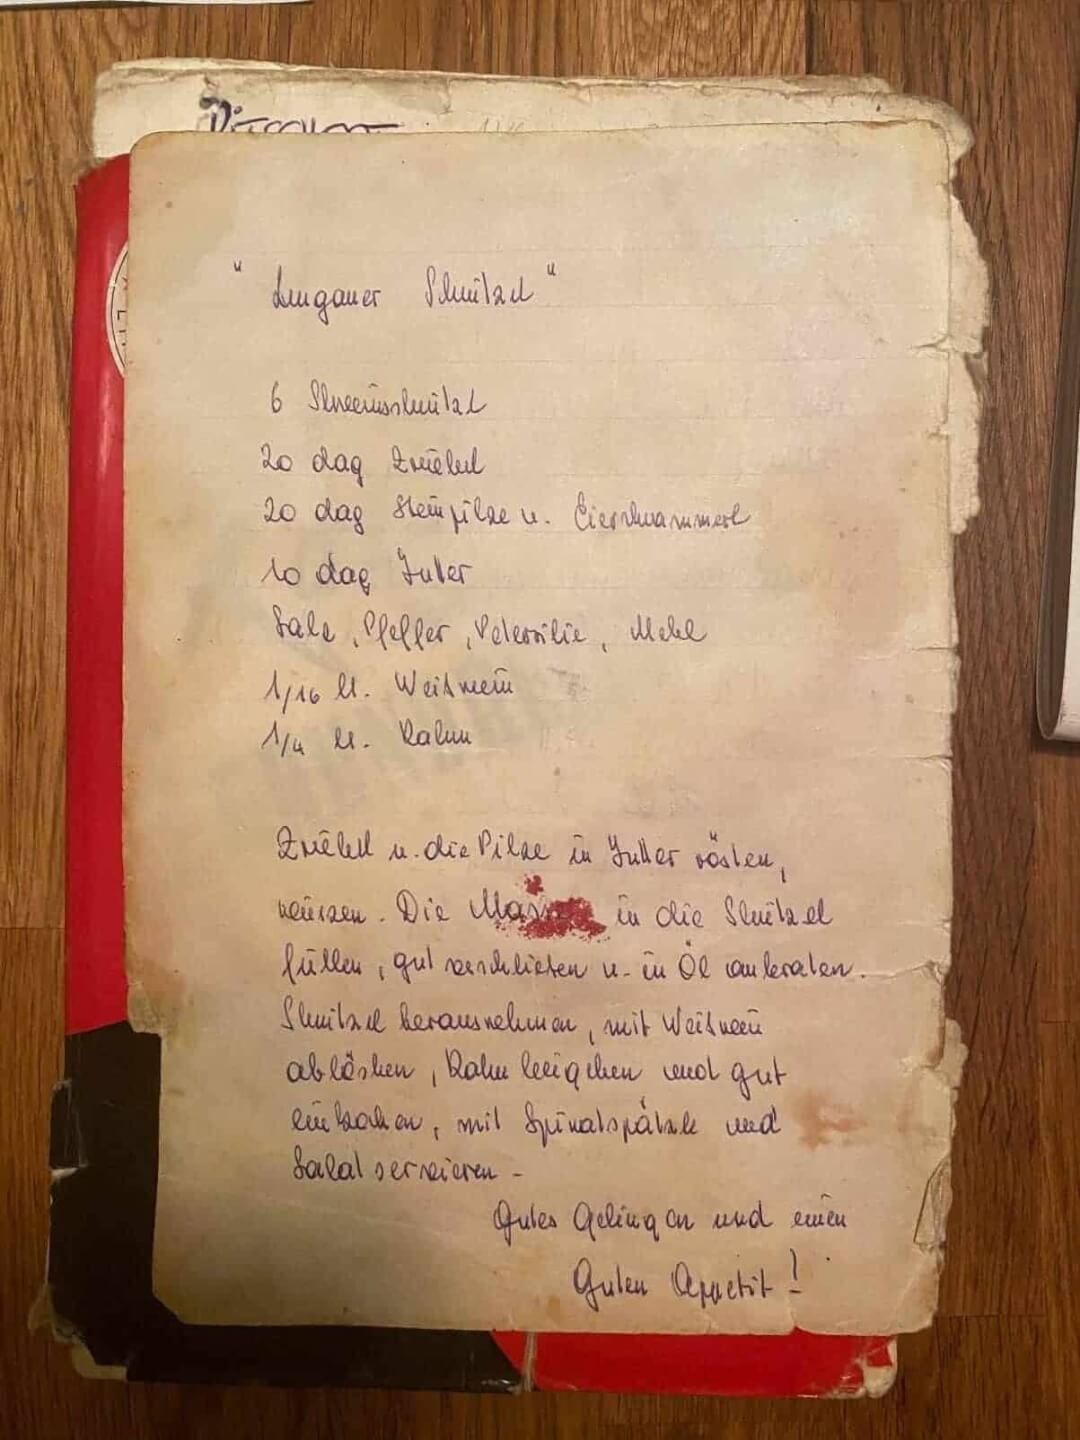 " Lungauer Schnitzel "
6 Schweinsschnitzel
20 dag Zwiebel
20 dag Steinpilze u. Eierschwammerl
10 dag Butter
Salz, Pfeffer, Petersilie, Mehl
1/16 lt. Weißwein
1/4 lt. Rahm
Zwiebel u. die Pilze in Butter rösten,
würzen. Die Masse in die Schnitzel
füllen, gut verschließen u. in Öl anbraten.
Schnitzel herausnehmen, mit Weißwein
ablöschen, Rahm beigeben und gut
einkochen, mit Spinatspätzle und
Salat servieren -
Gutes Gelingen und einen
Guten Appetit!